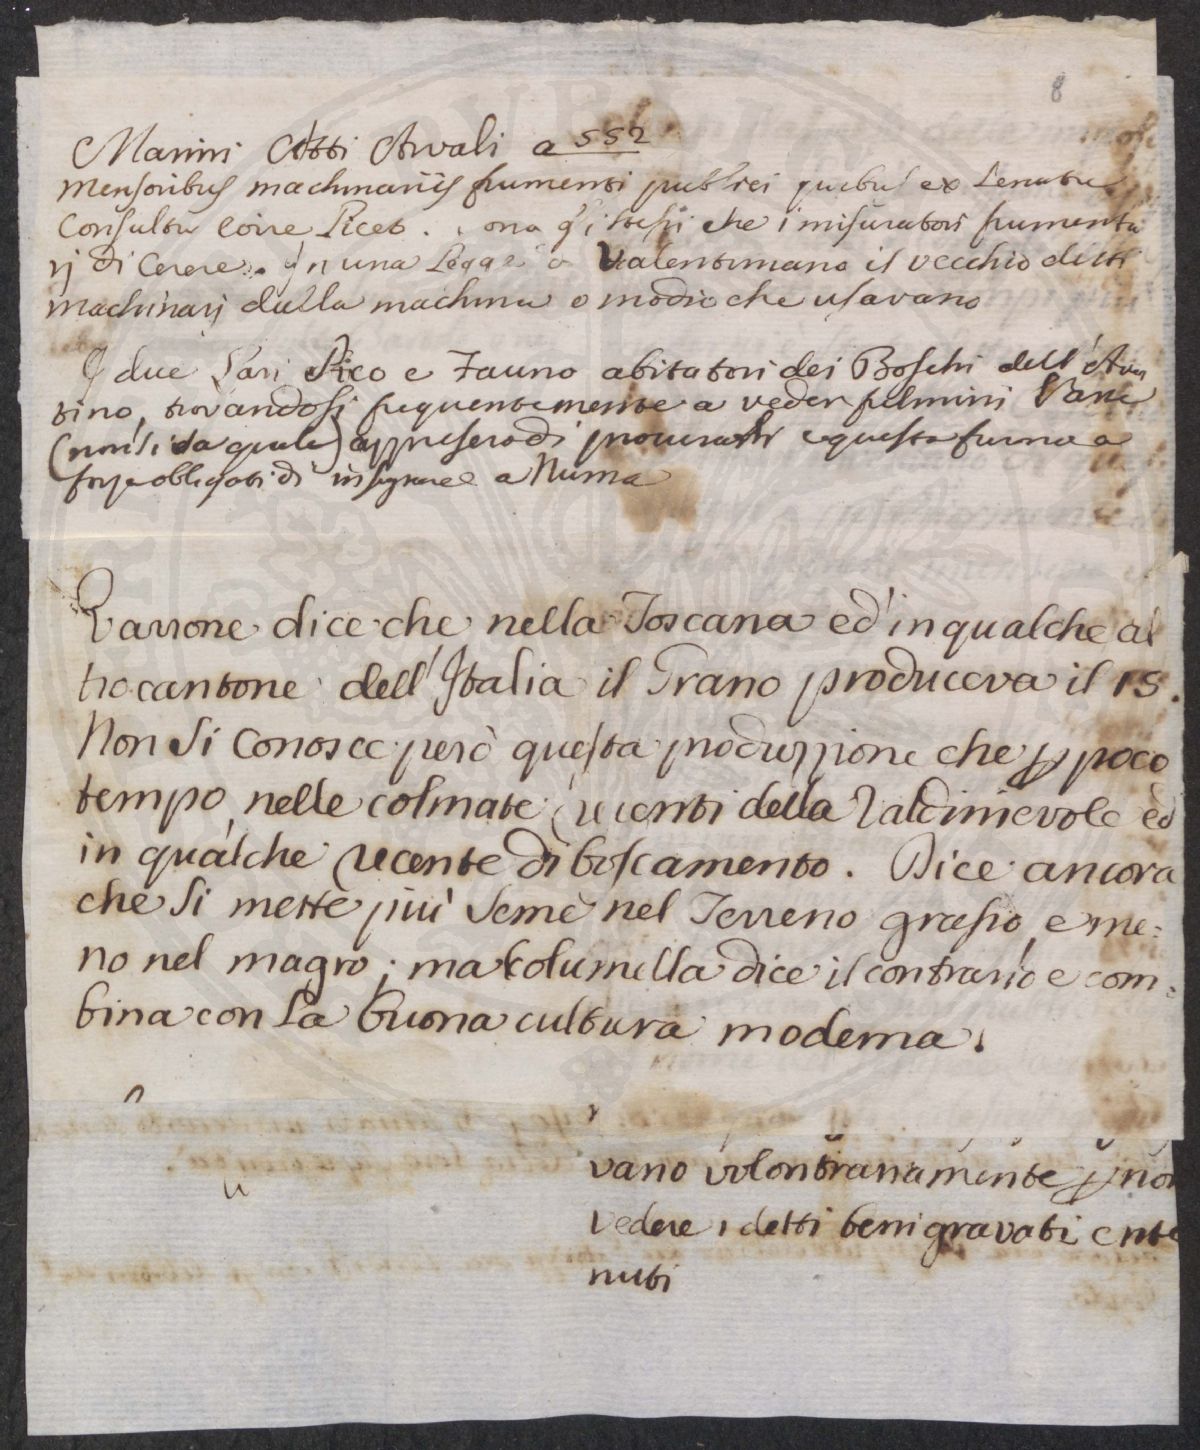 8
Marini Atti Arvali a 552
Mensoribus machinariis frumenti publici quibus ex Senatu
Consultu Coire licet. . ona gl'istessi che i misuratori frumenta
rj di Cerere. In una Legge a Valentiniano il vecchio detti
machinarj dalla machina o modio che usavano
I due Lari Pico e Fauno abitatori dei Boschi dell'Aven
tino, trovandosi frequentemente a veder fulmini
(non si sa quale) appresero di procurarli e questa furno a
forza obbligati di insegnare a Numa
Varrone dice che nella Toscana ed in qualche al
tro cantone dell'Italia il Grano produceva il 15.
Non si conosce però questa produzzione che p poco
tempo nelle colmate recenti della Valdinievole ed
in qualche recente diboscamento. Dice ancora
che si mette più seme nel Terreno grasso, e me:
no nel magro; ma Columella dice il contrario e com:
bina con la buona cultura moderna.
vano volontariamente p non
vedere i detti beni gravati e nte
nuti